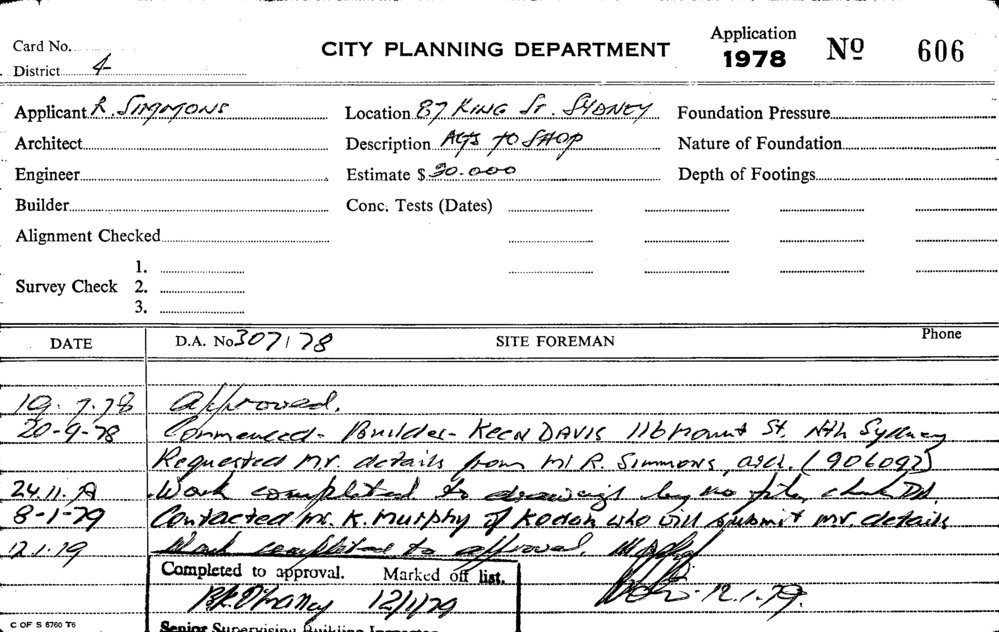 Card No.
District 4
CITY PLANNING DEPARTMENT
Application
1978
No 606
Applicant R. SIMMONS
Location 87 KING ST. SYDNEY
Foundation Pressure
Architect
Description ALTS TO SHOP
Nature of Foundation
Engineer
Estimate $ 30.000
Depth of Footings
Builder
Conc. Tests (Dates)
Alignment Checked
Survey Check
1.
2.
3.
DATE
D.A. No 307/78
SITE FOREMAN
Phone
19.7.78 Approved.
20-9-78 Commenced - Builder - KEEN DAVIS 116 Mount St. Nth Sydney
Requested mr. details from Mr R. Simmons, (906092)
24.11. Work completed to drawings
8-1-79 Contacted Mr. K. Murphy of Kodak who will submit mr. details
12.1.79 Work completed to approval.
12.1.79.
Completed to approval. Marked off list.
12/1/79
Senior Supervising Building Inspector
C OF S 6760 T6